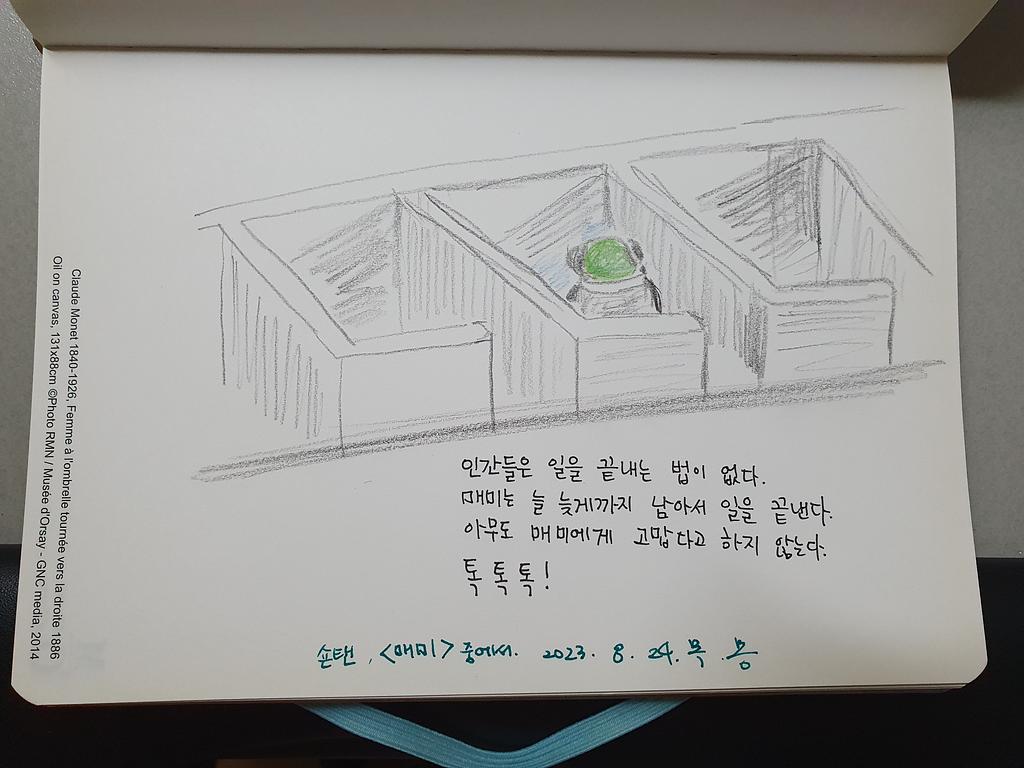 Claude Monet 1840-1926, Femme à l'ombrelle tournée vers la droite 1886
Oil on canvas, 131x88cm ©Photo RMN / Musée d'Orsay - GNC media, 2014
인간들은 일을 끝내는 법이 없다.
매미는 늘 늦게까지 남아서 일을 끝낸다.
아무도 매미에게 고맙다고 하지 않는다.
톡 톡 톡!
숀탠, <매미> 중에서. 2023. 8. 24. 목.